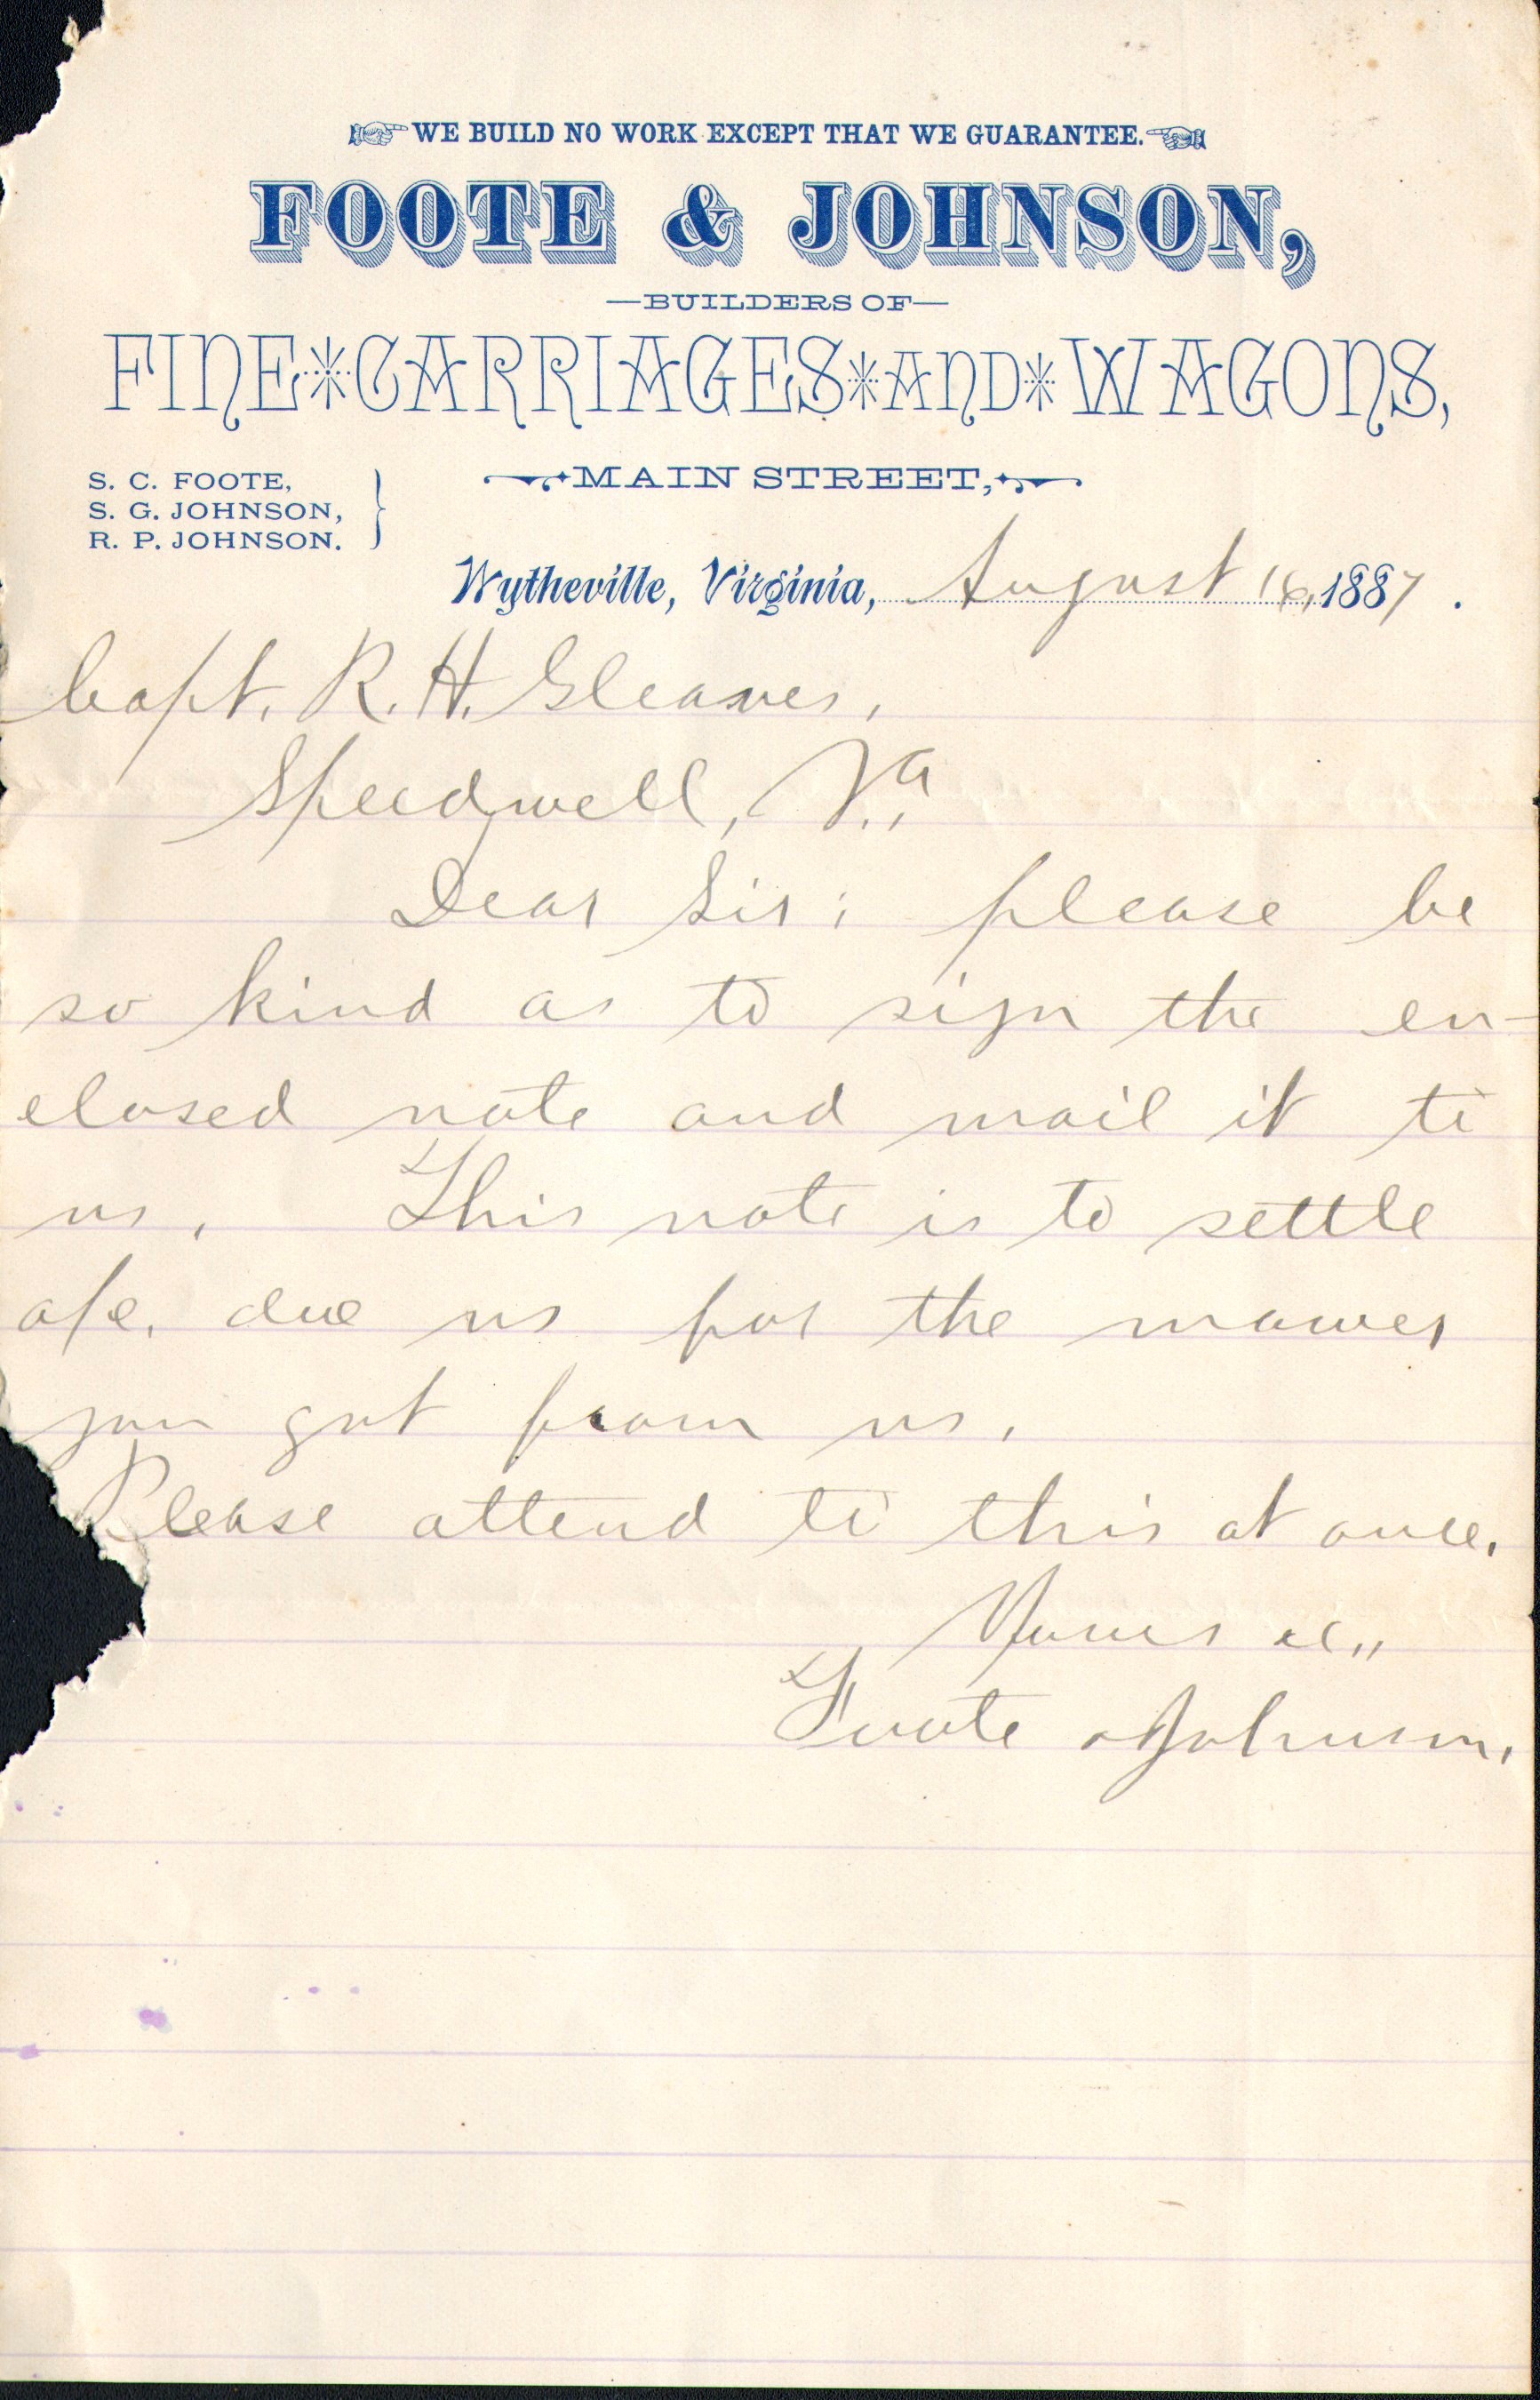 WE BUILD NO WORK EXCEPT THAT WE GUARANTEE.
FOOTE & JOHNSON,
—BUILDERS OF—
FINE CARRIAGES AND WAGONS,
S. C. FOOTE,
S. G. JOHNSON,
R. P. JOHNSON.
MAIN STREET,
Wytheville, Virginia, August 16, 1887.
Capt. R. H. Gleaves,
Speedwell, Va.,
Dear Sir: please be
so kind as to sign the en-
closed note and mail it to
us. This note is to settle
a/c. due us for the mower
you got from us.
Please attend to this at once.
Yours &c,,
Foote & Johnson.